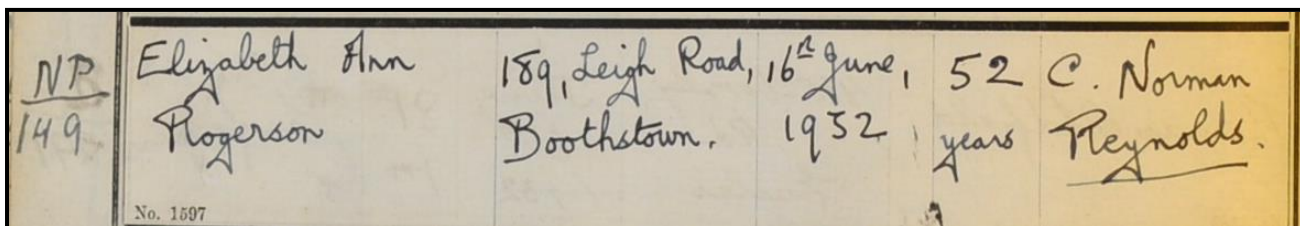 NP
149
Elizabeth Ann
Rogerson
189, Leigh Road,
Boothstown.
16th June,
1952
52
years
C. Norman
Reynolds.
No. 1597